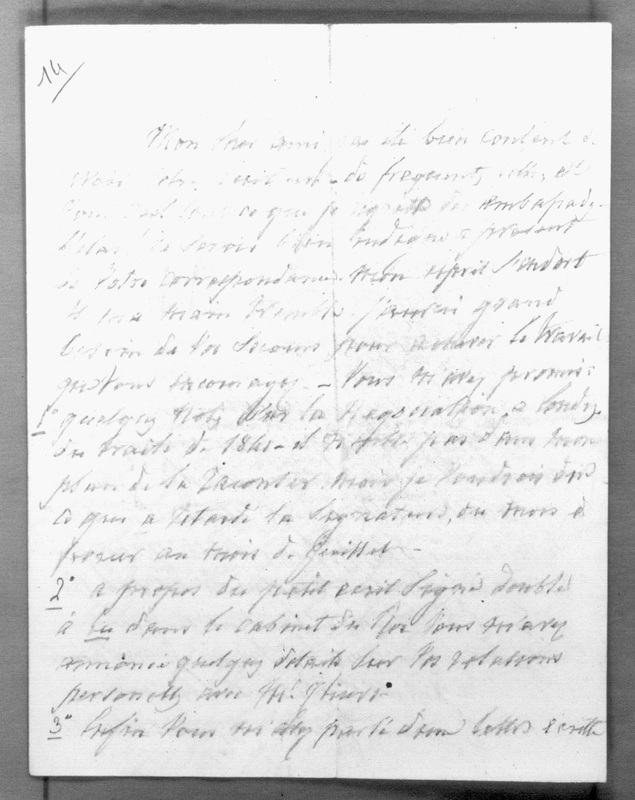 14
Mon cher ami j'ai été bien content de
de fréquent
tout ce que je regrette des ambassades
à présent
de votre correspondance. mon esprit s'endort
et ma main tremble. j'aurai grand
besoin de vos secours pour achever le travail
que vous encouragez. – Vous m'avez promis
1° quelques notes sur la négociation à Londres
du traité de 1841 – il n'entre pas dans mon
plan de la raconter mais je voudrois dire
ce qui a retardé la signature, du mois de
février au mois de Juillet –
2° a propos du petit écrit signé double
à lu dans le cabinet du Roi vous m'avez
annoncé quelques détails sur vos relations
personnelles avec Mr. Thiers.
3° Enfin vous m'avez parlé d'une lettre écrite